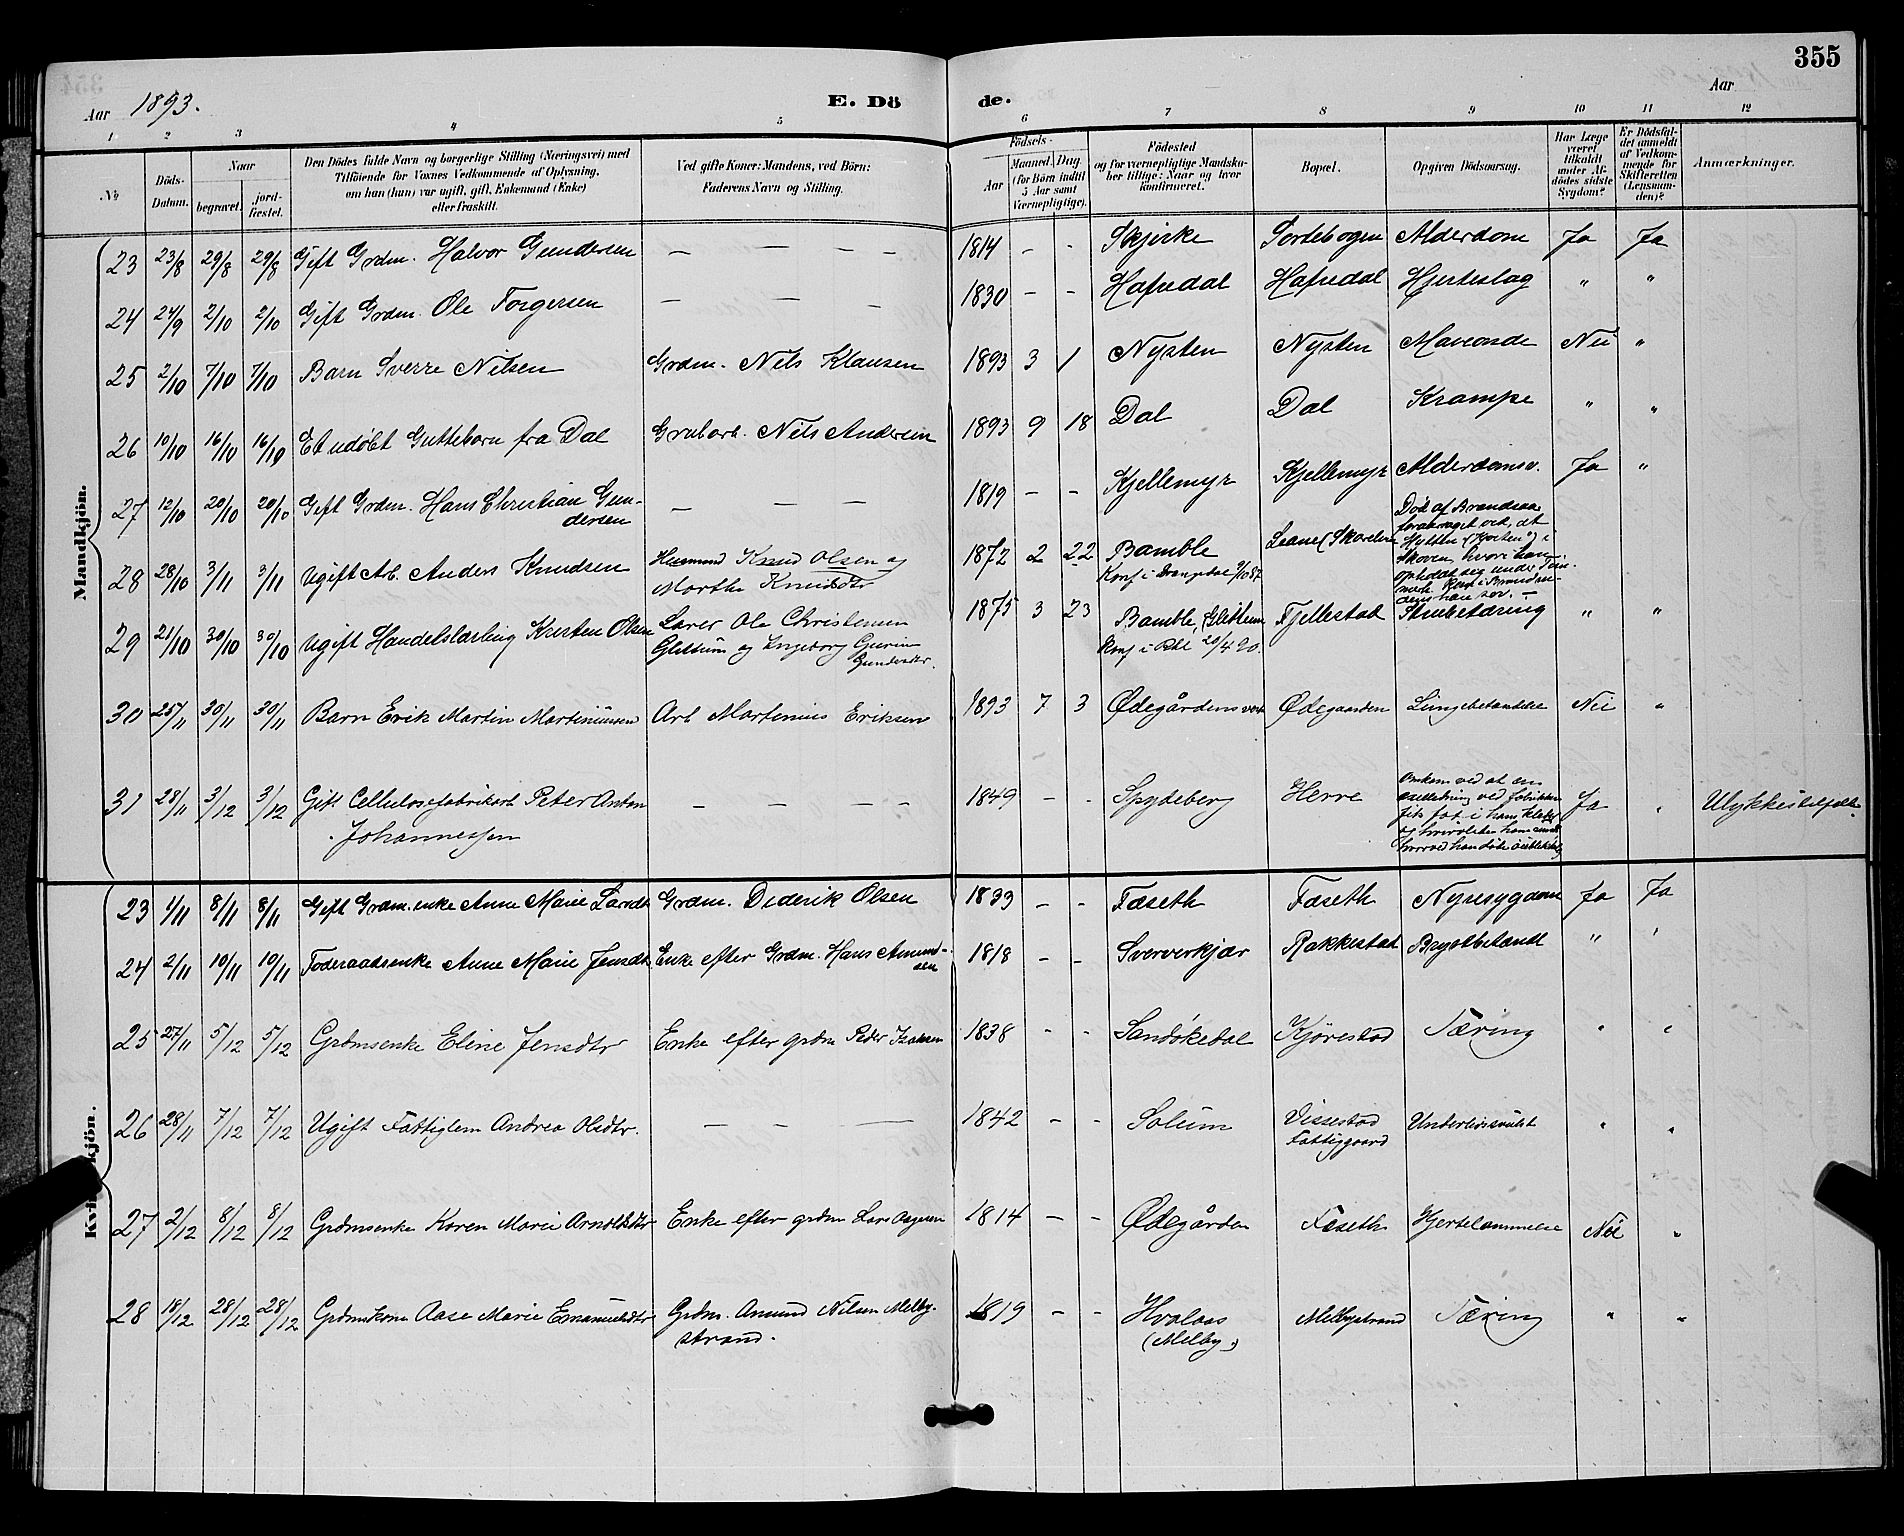 355
Aar 1893. E. Dö de. Aar
1 2 3 4 5 6 7 8 9 10 11 12
No
Döds-Datum.
Naar
begravet.
jordfæstet.
Den Dödes fulde Navn og borgerlige Stilling (Næringsvei) med
Tilföiende for Voxnes Vedkommende af Oplysning,
om han (hun) var ugift, gift, Enkemand (Enke)
eller fraskilt.
Ved gifte Koner: Mandens, ved Börn:
Faderens Navn og Stilling.
Födsels-
Aar
Maaned. Dag.
(for Börn indtil
5 Aar samt
Værnepligtige).
Födested
og for værnepligtige Mandskaber tillige: Naar og hvor konfirmeret.
Bopæl.
Opgiven Dödsaarsag.
Har Læge været tilkaldt under Afdödes sidste Sygdom?
Er Dödsfaldet anmeldt af Vedkommende for Skifteretten (Lensmanden)?
Anmærkninger.
Mandkjön.
23 23/8 29/8 29/8 Gift Grdm. Halvor Gundersen — — — 1814 - - Skjerke Tortebogen Alderdom Ja Ja
24 24/9 2/10 2/10 Gift Grdm. Ole Torgersen — — — 1830 - - Hafredal Hafredal Hjerteslag " "
25 2/10 7/10 7/10 Barn Sverre Nilsen Grdm. Nils Klausen 1893 3 1 Nysten Nysten Maveonde Nei "
26 10/10 16/10 16/10 Et udøbt Guttebarn fra Dal Grubarb. Nils Andersen 1893 9 18 Dal Dal Krampe " "
27 12/10 20/10 20/10 Gift Grdm. Hans Christian Gun-
dersen — — — 1819 - - Kjellemyr Kjellemyr Alderdomsv. Ja "
28 28/10 3/11 3/11 Ugift Arb. Anders Knudsen Husmand Knud Olsen og
Marthe Knudsdtr 1872 2 22 Bamble
Konf i Drangedal 9/10 87
Død af Brandsaar
foraarsaget ved, at
Hytten ("Kosten") i
Skoven, hvori han
opholdt sig under
29 21/10 30/10 30/10 Ugift Handelslærling Kristen Olsen Lærer Ole Christensen
Glittum og Ingeborg Gurine
Gundersdtr. 1875 3 23 Bamble, (Glittum
Konf i 20/4 90. Fjellestad Strubetæring " "
30 25/11 30/11 30/11 Barn Erik Martin Martiniussen Arb Martinius Eriksen 1893 7 3 Ødegårdens verk Ødegaarden Lungebetændelse Nei "
31 28/11 3/12 3/12 Gift Cellulosefabrikarb Peter Anton
Johannessen — — — — 1849 - - Spydeberg Herre Omkom ved at en
axelledning ved fabriken
fik fat i hans klæder
og hvirvlede ham rundt
hvorved han døde øieblikkelig Ja " Ulykkestilfælde.
Kvindekjön.
23 1/11 8/11 8/11 Gift Grdm.enke Anne Marie Larsdtr Grdm. Diderik Olsen 1833 - - Fæseth Fæseth Nyresygdom Ja Ja
24 2/11 10/11 10/11 Føderaadsenke Anne Marie Jensdtr Enke efter Grdm. Hans Amund-
sen 1818 - - Sververkjær Rakkestad Brystbetændl " "
25 27/11 5/12 5/12 Grdmsenke Eline Jensdtr Enke efter grdm Peder Isaksen 1838 - - Sandøkedal Kjørestad Tæring " "
26 28/11 7/12 7/12 Ugift Fattiglem Andrea Olsdtr. — — — 1842 - - Solum Vissestad
Fattiggaard Underlivssvulst " "
27 2/12 8/12 8/12 Grdmsenke Karen Marie Arnoldsdtr Enke efter grdm Lars Aagesen 1814 - - Ødegården Fæseth Hjertelammelse Nei "
28 18/12 28/12 28/12 Grdmkone Aase Marie Emanuelsdtr Grdm. Amund Nilsen Melby-
strand. 1819 - - Hvalaas
(Melby) Melbystrand Tæring " "